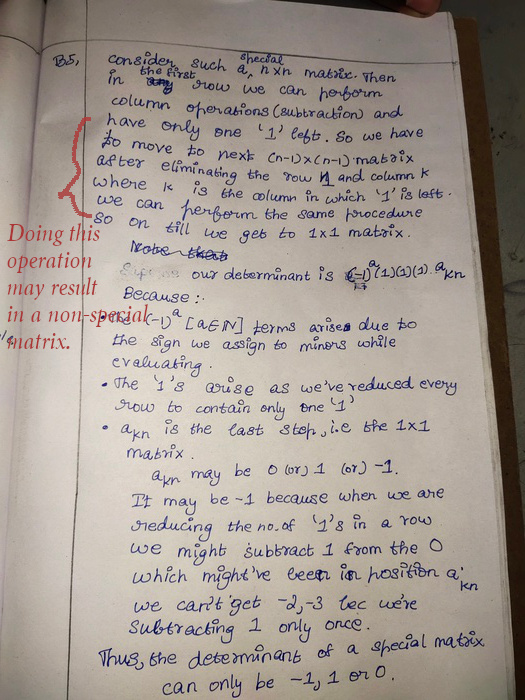 B5,
consider such a special n×n matrix. Then
in the first row we can perform
column operations (subtraction) and
have only one '1' left. So we have
to move to next (n-1)×(n-1) matrix
after eliminating the row 1 and column k
where k is the column in which '1' is left.
we can perform the same procedure
so on till we get to 1×1 matrix.
Note that
our determinant is (-1)^a (1)(1)(1). a_kn
Because :-
• The (-1)^a [a∈N] terms arises due to
the sign we assign to minors while
evaluating.
• The '1's arise as we've reduced every
row to contain only one '1'
• a_kn is the last step, i.e the 1×1
matrix.
a_kn may be 0 (or) 1 (or) -1.
It may be -1 because when we are
reducing the no. of '1's in a row
we might subtract 1 from the 0
which might've been in position a_kn
we can't get -2, -3 bec we're
subtracting 1 only once.
Thus, the determinant of a special matrix
can only be -1, 1 or 0.
Doing this
operation
may result
in a non-special
matrix.